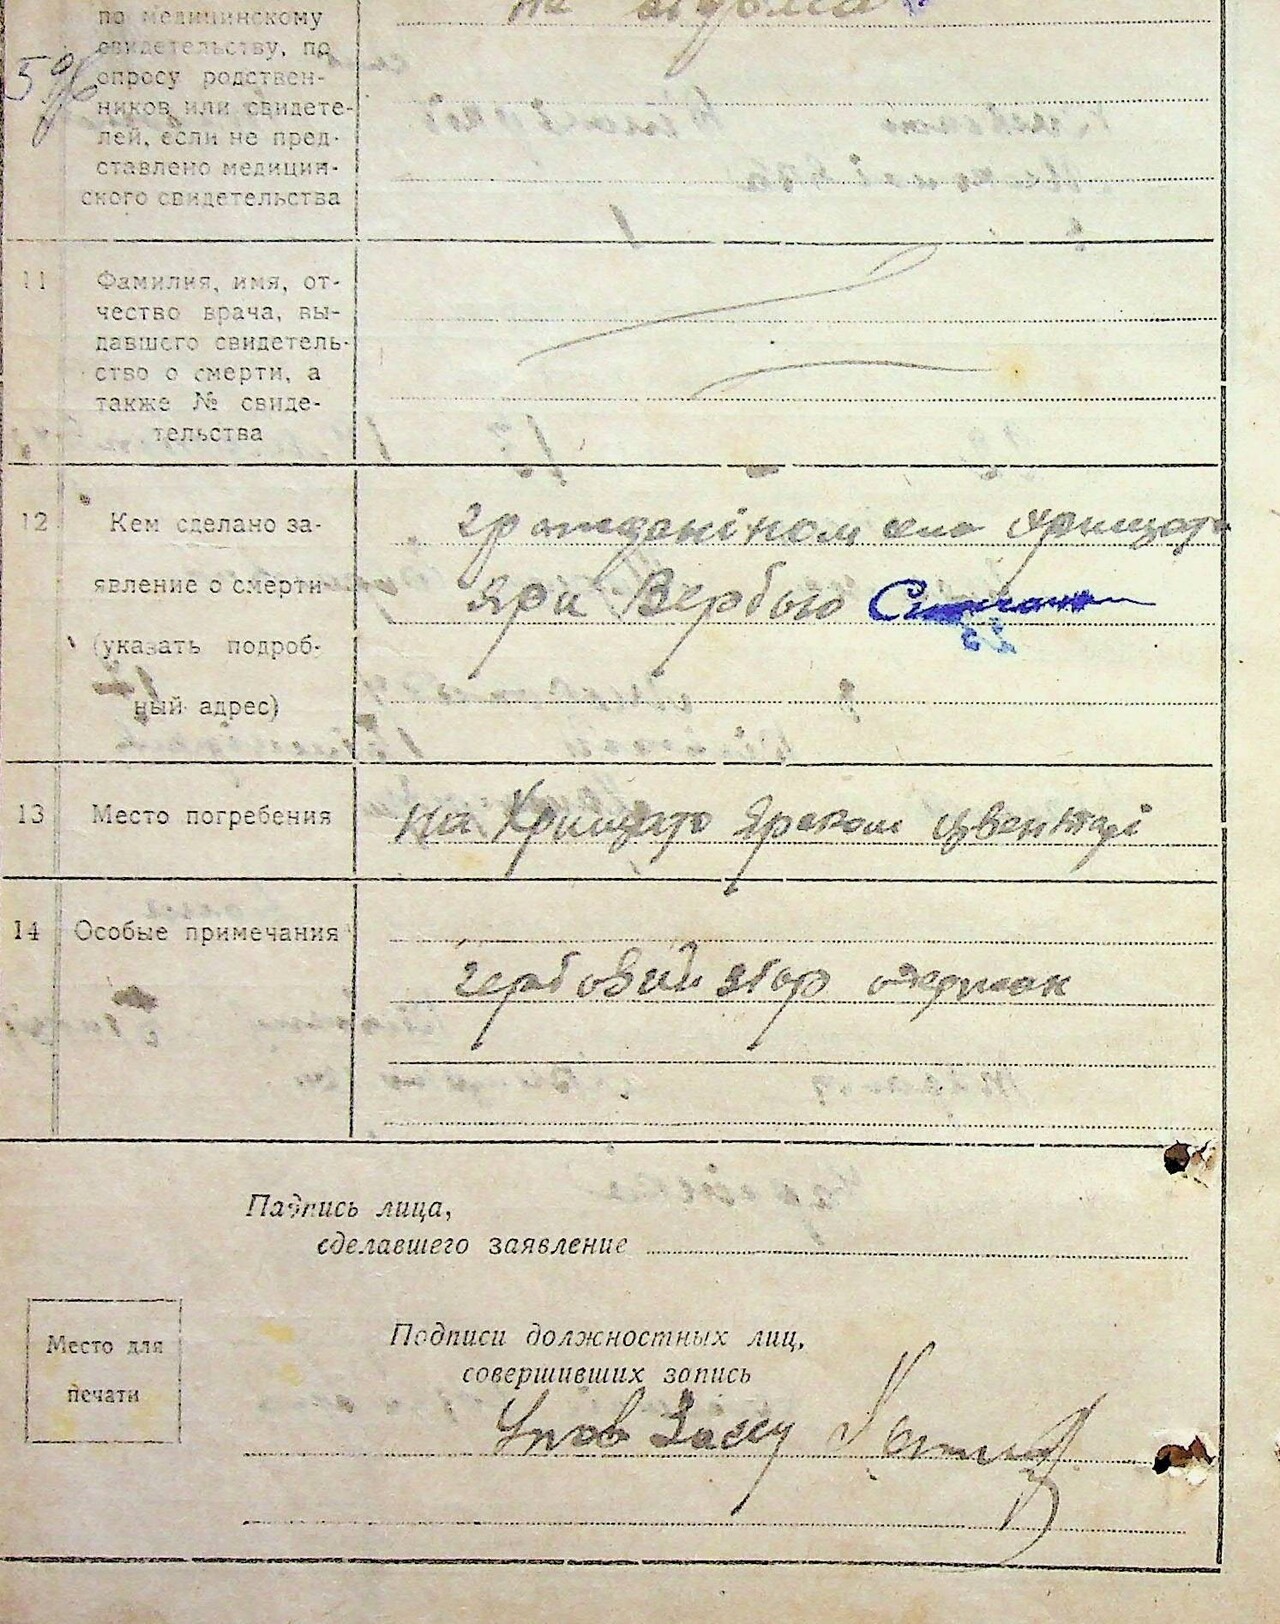 по медицинскому
свидетельству, по
опросу родствен-
ников или свидете-
лей, если не пред-
ставлено медицин-
ского свидетельства
не відомо
11
Фамилия, имя, от-
чество врача, вы-
давшего свидетель-
ство о смерти, а
также № свиде-
тельства
12
Кем сделано за-
явление о смерти
(указать подроб-
ный адрес)
гражданіном села Хрищата
Яри Вербою
13
Место погребения
на Хрищато Яреком цвентарі
14
Особые примечания
гербовий збор одержан
Падпись лица,
сделавшего заявление
Место для
печати
Подписи должностных лиц,
совершивших запись
Упов Загсу